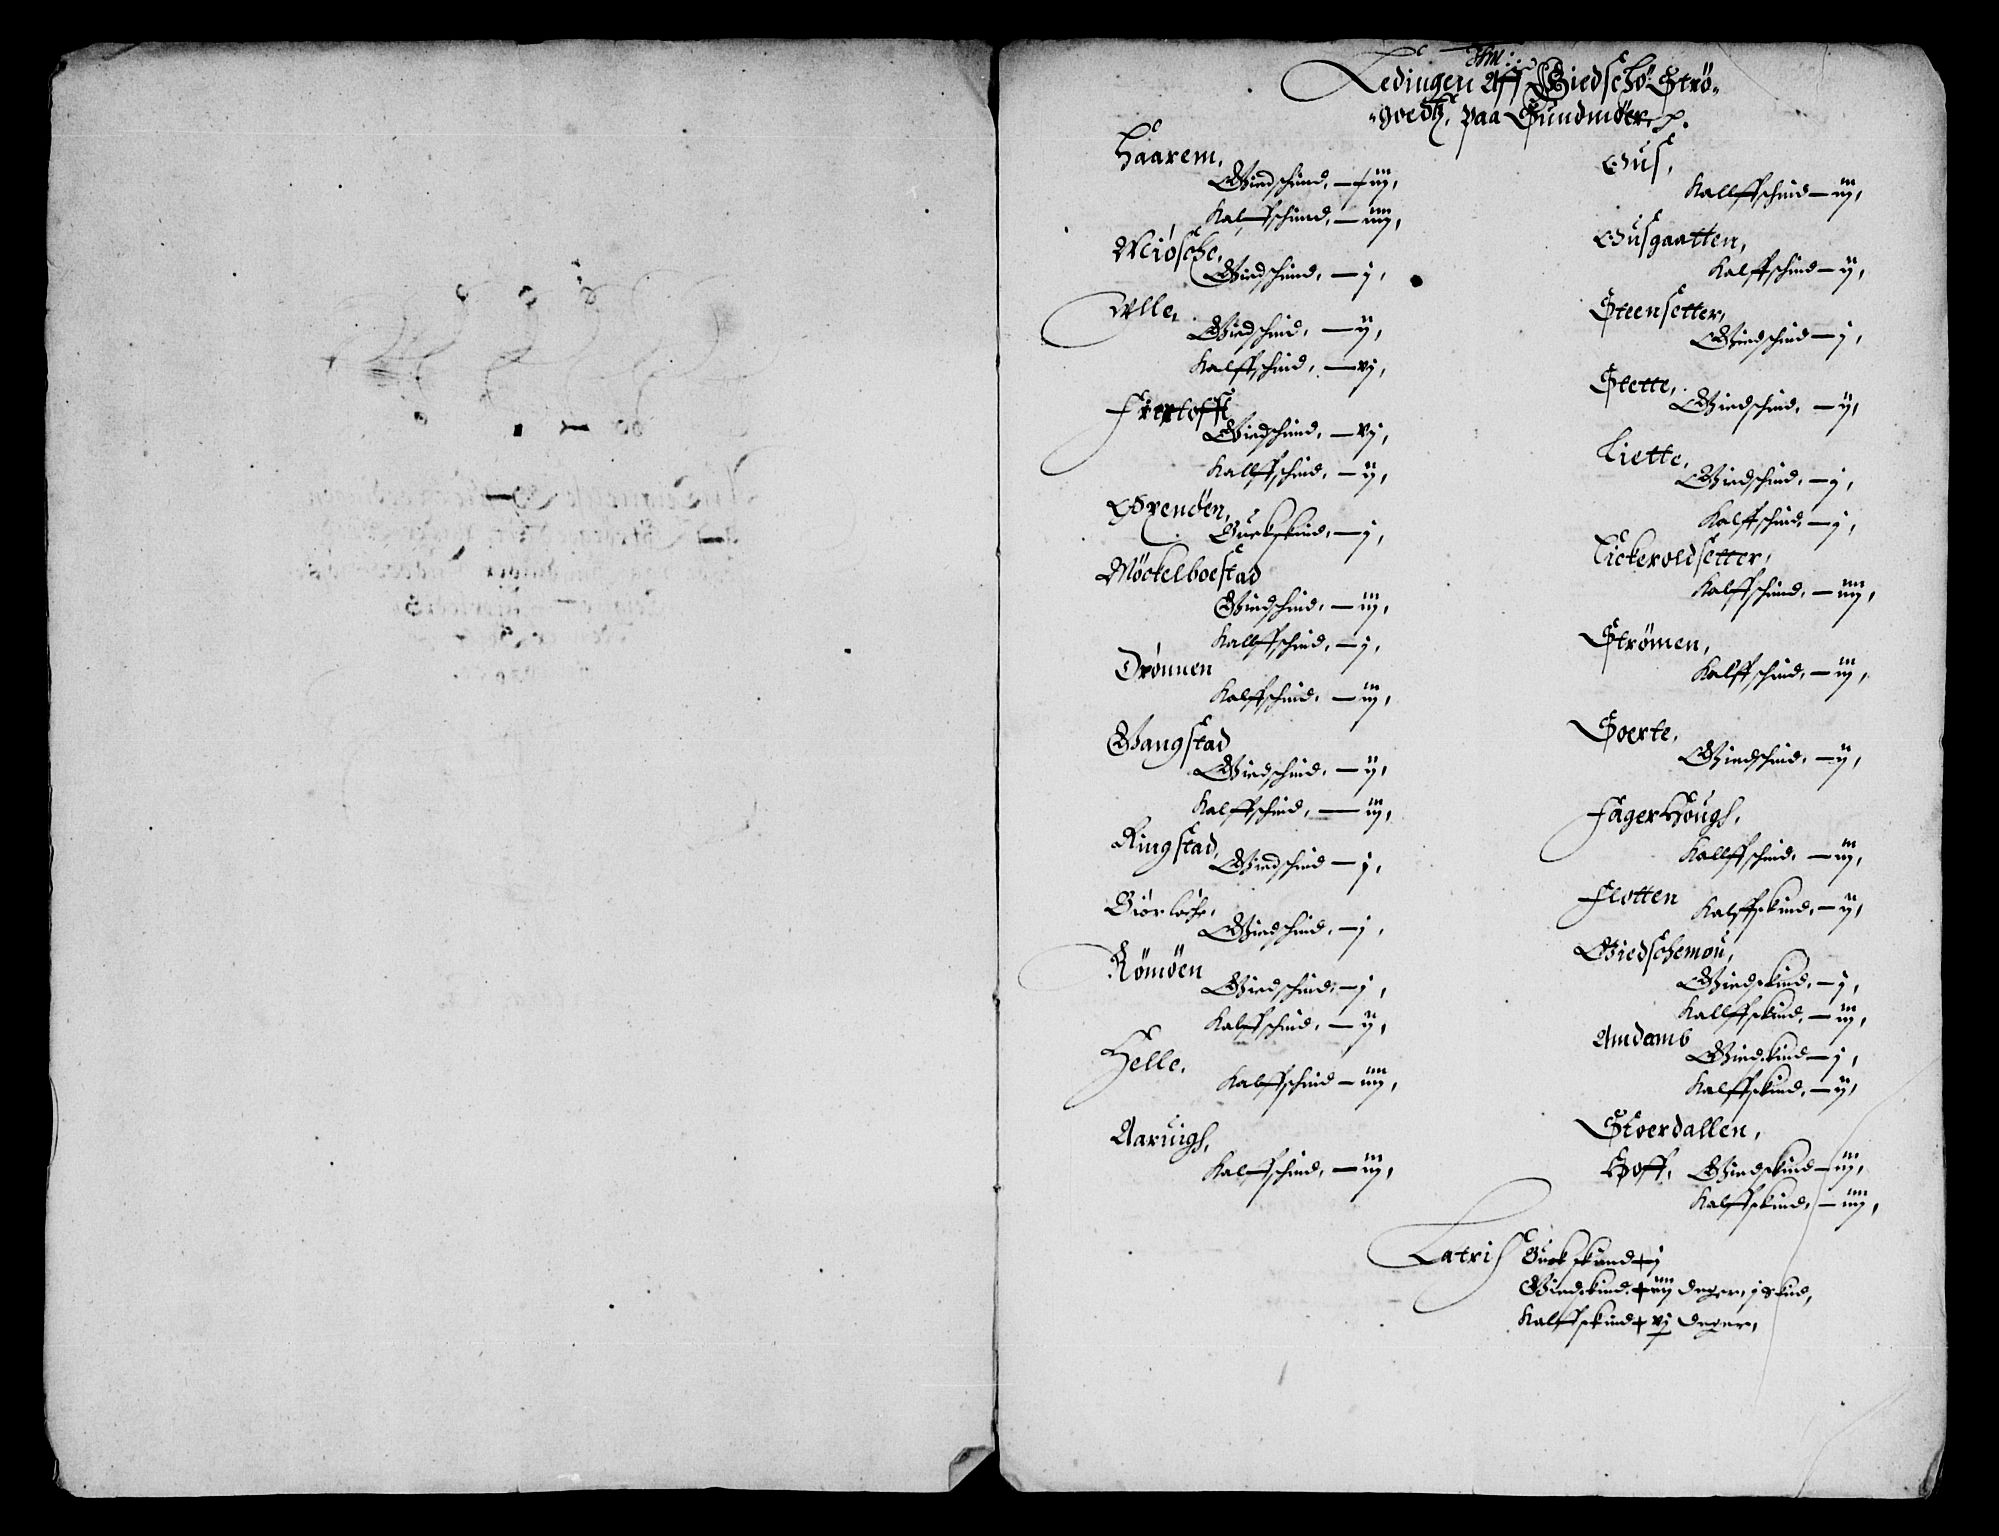 Ledingen Aff Giedschø Strø-
goedtz, paa Sundmør
Haarem,
Giedschind, — iij,
Kalffschind, — iiij,
Miøsche,
Giedschind, — j,
Ulle,
Giedschind, — ij,
Kalffschind, — vj,
Frertofft
Giedschind, — vj,
Kalffschind, — ij,
Gxendøen,
Buckskind, — j,
Møckelboestad
Giedschind, — iij,
Kalffschind, — j,
Drønnen
Kalffschind, — iij,
Vangstad
Giedschind, — ij,
Kalffschind, — iij,
Ringstad,
Giedschind — j,
Giørløche,
Giedschind, — j,
Rømøen
Giedschind, — j,
Kalffschind, — ij,
Helle,
Kalffschind — iiij,
Aaruigh,
Kalffschind, — iij,
Gus,
Kallffschind — iij,
Gusgaatten,
Kalffschind — ij,
Steensetter,
Giedschind — j,
Stette,
Giedschind, — ij,
Liette,
Giedschind, — j,
Kalffschind, — j,
Lickeroldsetter,
Kalffschind, — iiij,
Strømen,
Kalffschind, — iij,
Soerte,
Giedschind, — ij,
Fagerhough,
Kallffschind, — iij,
Flotten Kalffskind, — ij,
Giedschemou,
Giedskind, — j,
Kallffskind, — iij,
Amdamb
Giedskind — j,
Kalffskind, — ij,
Stoerdallen,
Hoff, Giedskind — iij,
Kalffskind, — iiij,
Latris Buckskind — j
Giedskind — iiij deger, j skind,
Kalffskind — vj deger,